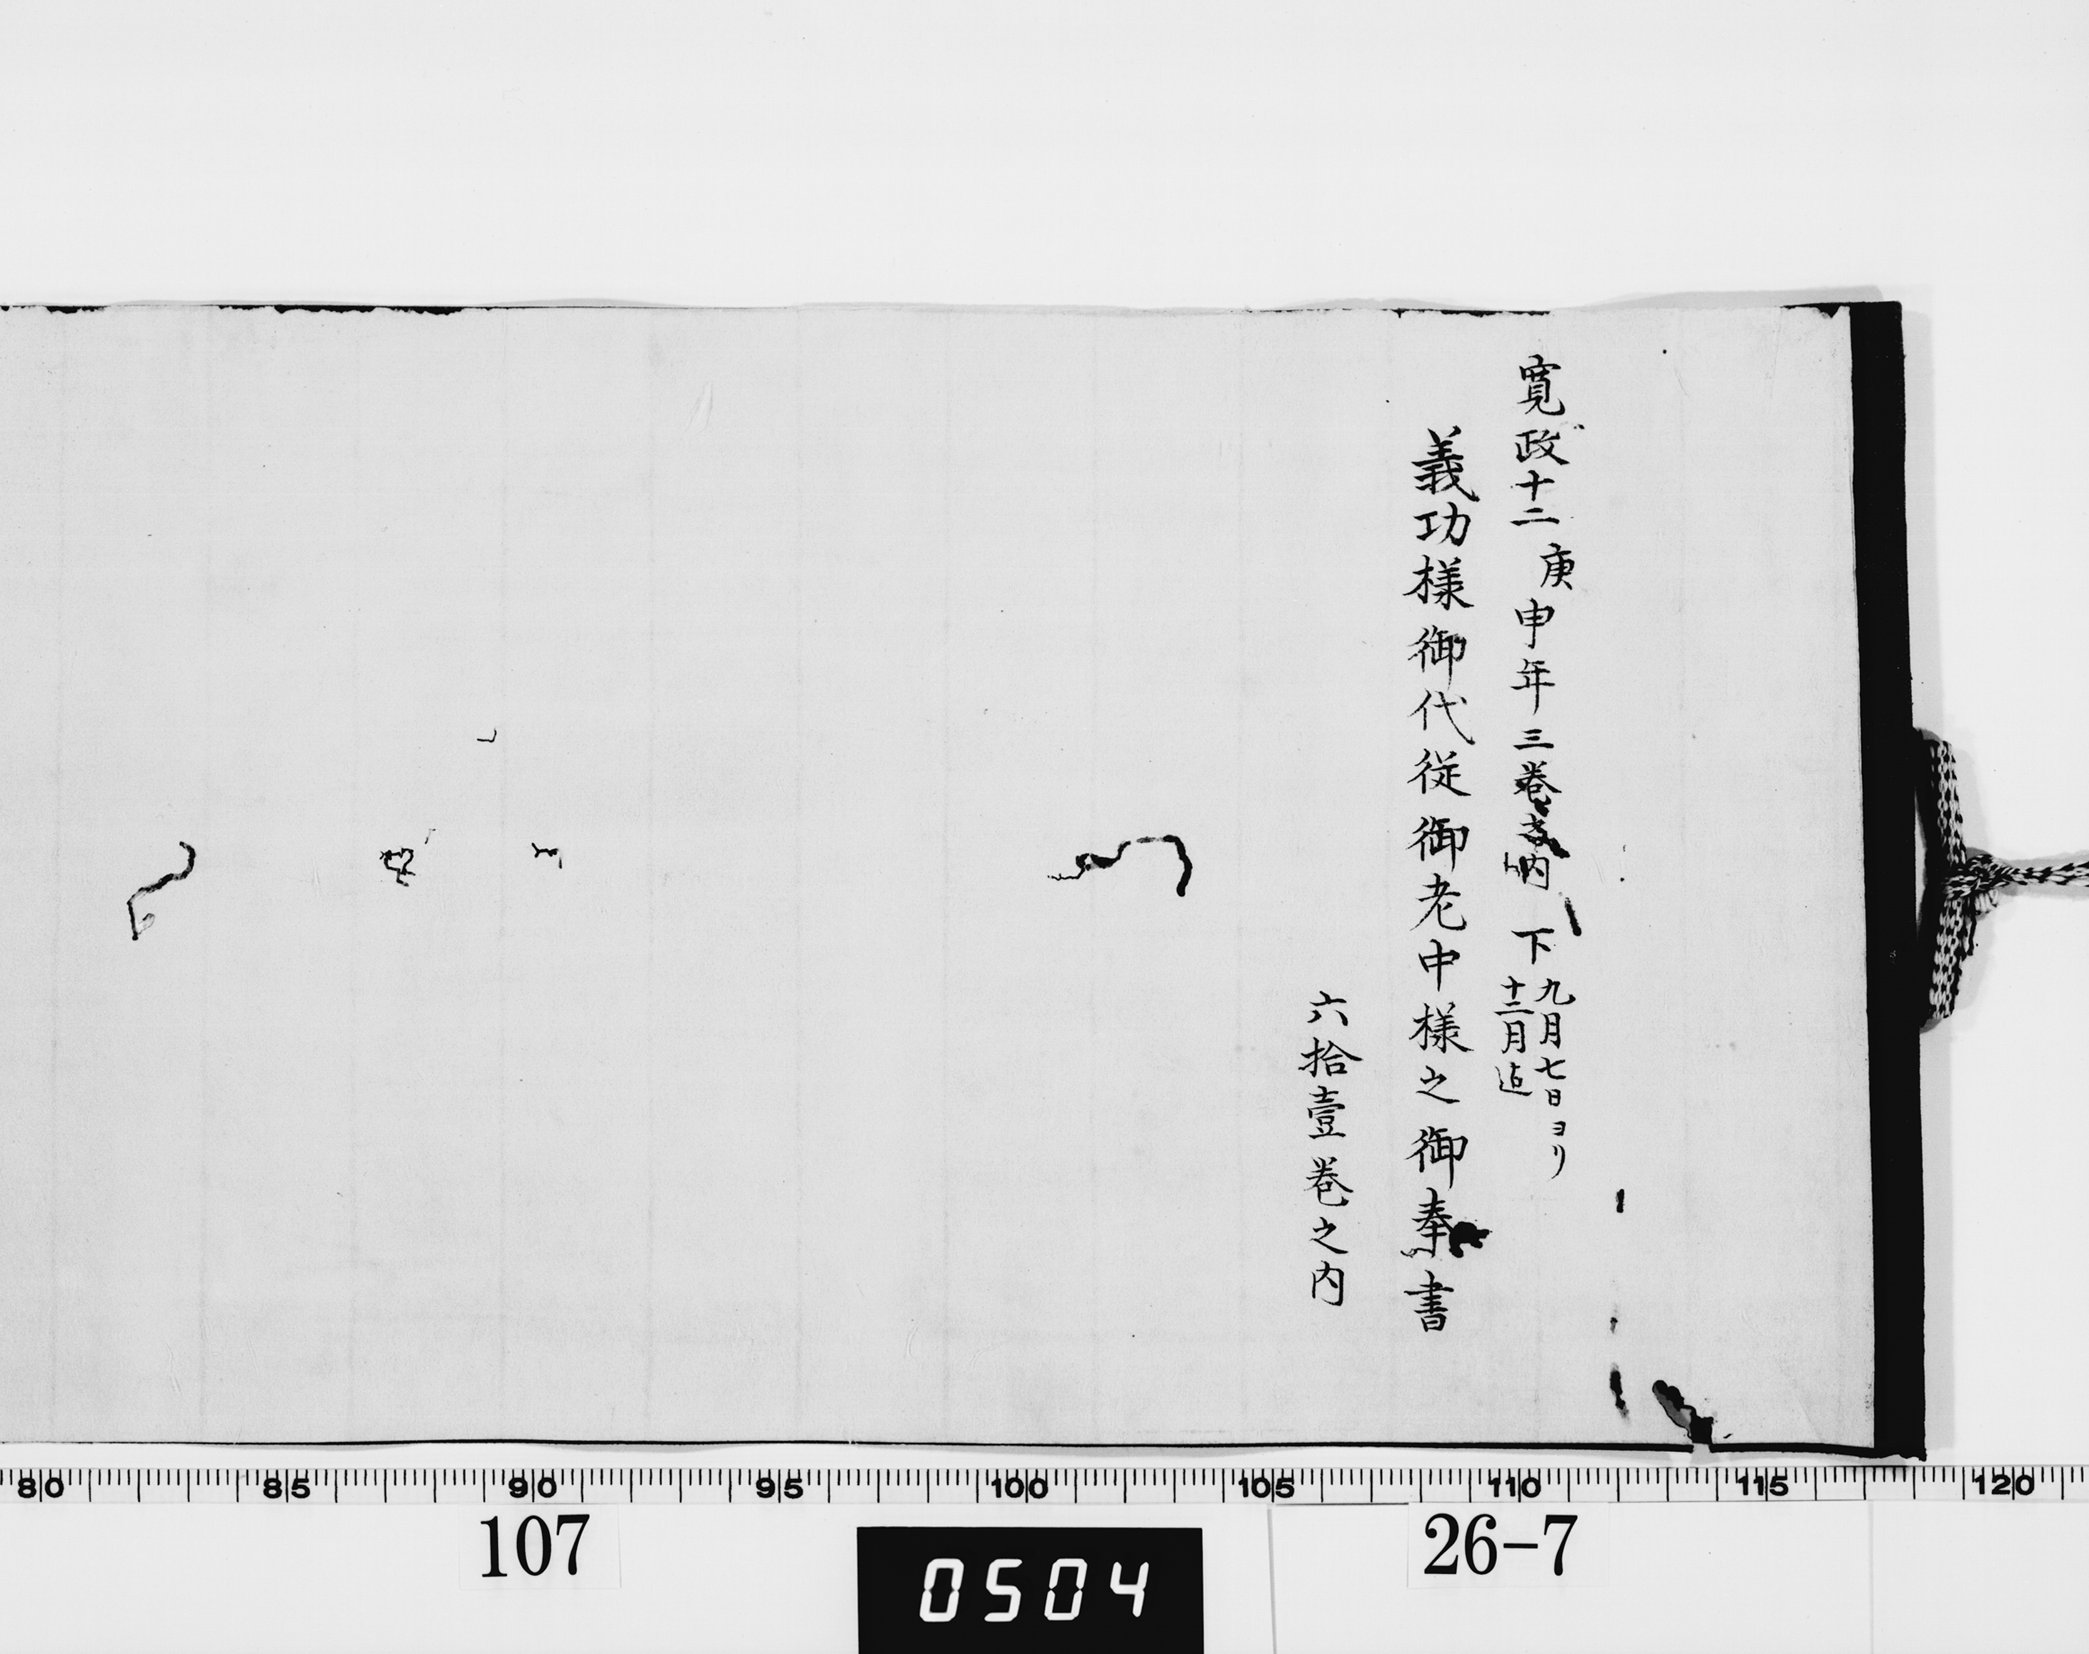 寛政十二庚申年三巻之内 下 九月七日ヨリ
十二月迄
義功様御代従御老中様之御奉書
六拾壹巻之内
80 85 90 95 100 105 110 115 120
107
0504
26-7